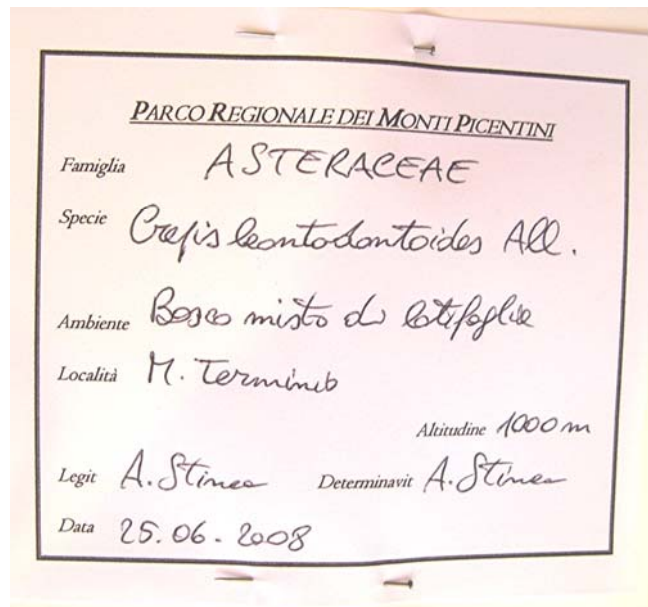 PARCO REGIONALE DEI MONTI PICENTINI
Famiglia ASTERACEAE
Specie Crepis leontodontoides All.
Ambiente Bosco misto di latifoglie
Località M. Terminio
Altitudine 1000 m
Legit A. Stinca Determinavit A. Stinca
Data 25.06.2008